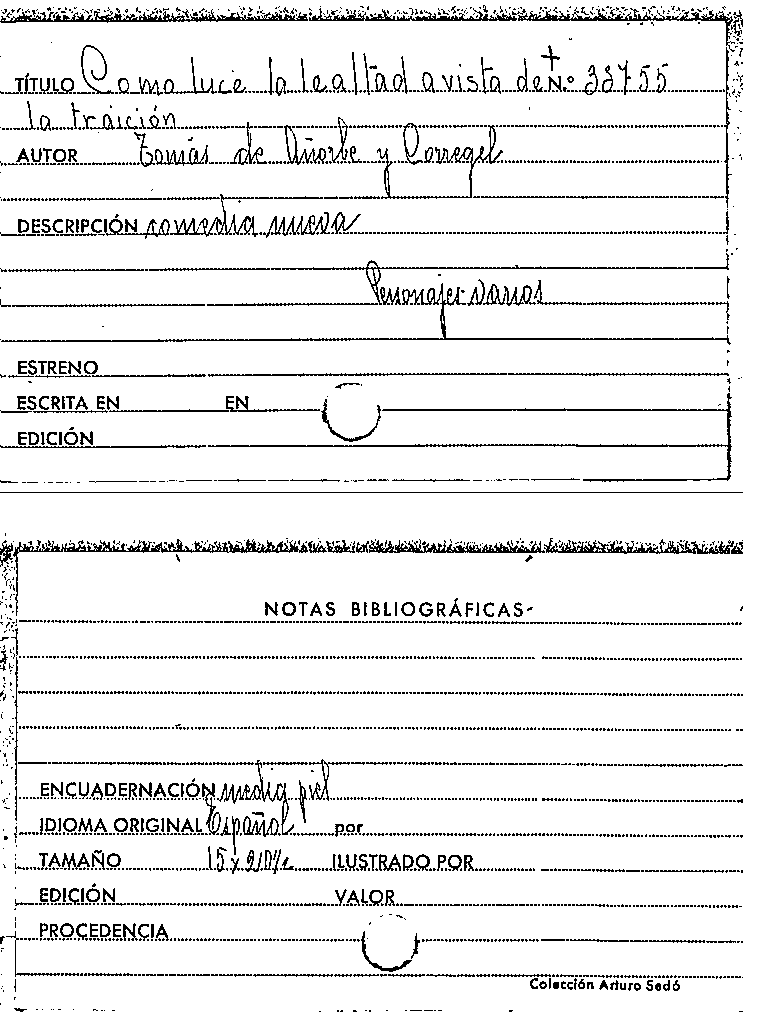 TÍTULO Como luce la lealtad a vista de N.º 33755
la traición
AUTOR Tomás de Añorbe y Corregel
DESCRIPCIÓN comedia nueva
Personajes varios
ESTRENO
ESCRITA EN EN
EDICIÓN
NOTAS BIBLIOGRÁFICAS
ENCUADERNACIÓN media piel
IDIOMA ORIGINAL Español por
TAMAÑO ILUSTRADO POR
EDICIÓN VALOR
PROCEDENCIA
Colección Arturo Sedó